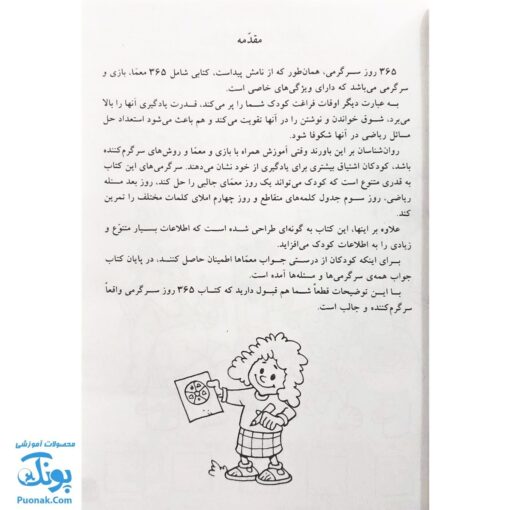 مقدّمه
۳۶۵ روز سرگرمی، همان‌طور که از نامش پیداست، کتابی شامل ۳۶۵ معمّا، بازی و
سرگرمی می‌باشد که دارای ویژگی‌های خاصی است.
به عبارت دیگر اوقات فراغت کودک شما را پر می‌کند، قدرت یادگیری آنها را بالا
می‌برد، شوق خواندن و نوشتن را در آنها تقویت می‌کند و هم باعث می‌شود استعداد حل
مسائل ریاضی در آنها شکوفا شود.
روان‌شناسان بر این باورند وقتی آموزش همراه با بازی و معمّا و روش‌های سرگرم‌کننده
باشد، کودکان اشتیاق بیشتری برای یادگیری از خود نشان می‌دهند. سرگرمی‌های این کتاب
به قدری متنوع است که کودک می‌تواند یک روز معمّای جالبی را حل کند، روز بعد مسئله
ریاضی، روز سوم جدول کلمه‌های متقاطع و روز چهارم املای کلمات مختلف را تمرین
کند.
علاوه بر اینها، این کتاب به گونه‌ای طراحی شده است که اطلاعات بسیار متنوّع و
زیادی را به اطلاعات کودک می‌افزاید.
برای اینکه کودکان از درستی جواب معمّاها اطمینان حاصل کنند، در پایان کتاب
جواب همه‌ی سرگرمی‌ها و مسئله‌ها آمده است.
با این توضیحات قطعاً شما هم قبول دارید که کتاب ۳۶۵ روز سرگرمی واقعاً
سرگرم‌کننده و جالب است.
محصولات آموزشی
پونک
Puonak.Com